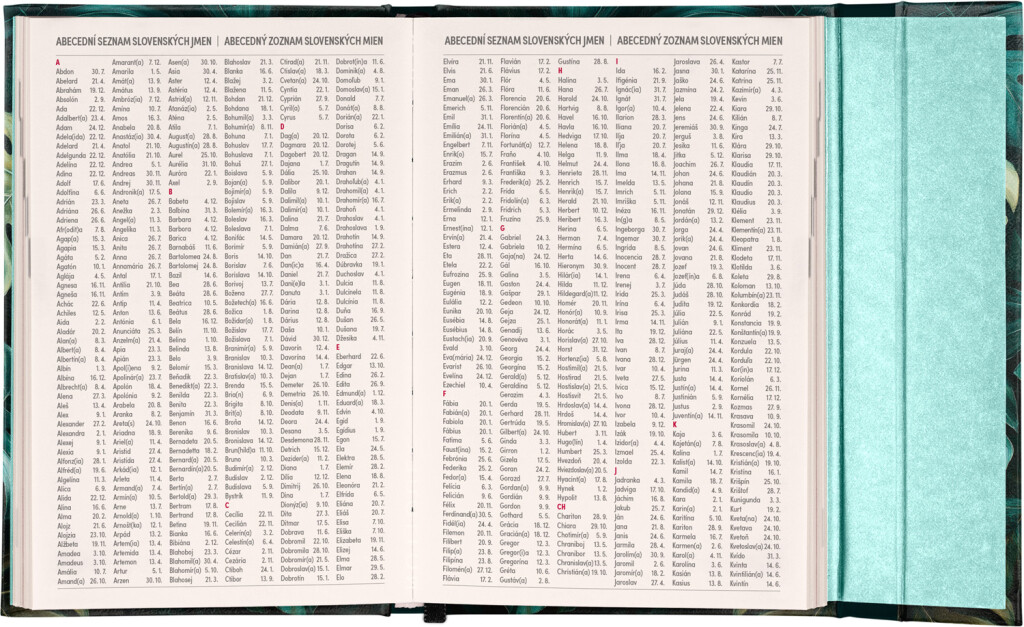 ABECEDNÍ SEZNAM SLOVENSKÝCH JMEN | ABECEDNÝ ZOZNAM SLOVENSKÝCH MIEN
A
Abdon 30. 7.
Abelard 21. 4.
Abrahám 19. 12.
Absolón 2. 9.
Ada 22. 12.
Adalbert(a) 23. 4.
Adam 24. 12.
Adela(ida) 22. 12.
Adelard 21. 4.
Adelgunda 22. 12.
Adelína 22. 12.
Adina 22. 12.
Adolf 17. 6.
Adolfína 6. 6.
Adrián 23. 3.
Adriána 26. 6.
Adriena 26. 6.
Afr(odita) 7. 8.
Agap(a) 15. 3.
Agapia 15. 3.
Agáta 5. 2.
Agatón 10. 1.
Aglája 4. 5.
Agnesa 16. 11.
Agneša 16. 11.
Achác 22. 6.
Achiles 12. 5.
Aida 2. 2.
Aladár 20. 2.
Alan(a) 8. 3.
Albert(a) 8. 4.
Albertín(a) 8. 4.
Albín 1. 3.
Albína 16. 12.
Albrecht(a) 8. 4.
Alena 27. 3.
Aleš 13. 4.
Alex 9. 1.
Alexander 27. 2.
Alexandra 2. 1.
Alexej 9. 1.
Alexia 9. 1.
Alfonz(a) 28. 1.
Alfréd(a) 19. 6.
Algelína 11. 3.
Alica 6. 9.
Alida 22. 12.
Alina 16. 6.
Alma 20. 2.
Alojz 21. 6.
Alojzia 23. 10.
Alžbeta 19. 11.
Amadea 3. 10.
Amadeus 3. 10.
Amália 10. 7.
Amand(a) 26. 10.
Amarant(a) 7. 12.
Amarila 1. 5.
Amát(a) 13. 9.
Amátus 13. 9.
Ambróz(ia) 7. 12.
Amina 10. 7.
Amos 16. 3.
Anabela 20. 8.
Anastáz(ia) 30. 4.
Anatol 21. 10.
Anatólia 21. 10.
Andrea 5. 1.
Andreas 30. 11.
Andrej 30. 11.
Andronik(a) 17. 5.
Aneta 26. 7.
Anežka 2. 3.
Angel(a) 11. 3.
Angelika 11. 3.
Anica 26. 7.
Anita 26. 7.
Anna 26. 7.
Annamária 26. 7.
Antal 17. 1.
Antília 21. 10.
Antim 3. 9.
Antip 11. 4.
Anton 13. 6.
Antónia 6. 1.
Anunciáta 25. 3.
Anzelm(a) 21. 4.
Apia 23. 3.
Apián 23. 3.
Apol(l)ena 9. 2.
Apolinár(a) 23. 7.
Apolón 18. 4.
Apolónia 9. 2.
Arabela 20. 8.
Aranka 8. 2.
Areta(s) 24. 10.
Ariadna 18. 9.
Ariel(a) 11. 4.
Aristid 27. 4.
Aristída 27. 4.
Arkád(ia) 12. 1.
Arleta 11. 4.
Armand(a) 7. 4.
Armín(a) 10. 5.
Arne 13. 7.
Arnold(a) 1. 10.
Arnošt(ka) 12. 1.
Arpád 13. 2.
Artem(ia) 13. 4.
Artemida 13. 4.
Artemon 13. 4.
Artur 5. 1.
Arzen 30. 10.
Asen(a) 30. 10.
Asia 30. 4.
Aster 12. 4.
Astéria 12. 4.
Astrid(a) 12. 11.
Atanáz(ia) 2. 5.
Aténa 2. 5.
Atila 7. 1.
August(a) 28. 8.
Augustín(a) 28. 8.
Aurel 25. 10.
Aurélia 31. 10.
Auróra 22. 1.
Axel 2. 9.
B
Babeta 4. 12.
Balbína 31. 3.
Barbara 4. 12.
Barbora 4. 12.
Barica 4. 12.
Barnabáš 11. 6.
Bartolomea 24. 8.
Bartolomej 24. 8.
Bazil 14. 6.
Bea 28. 6.
Beáta 28. 6.
Beatrica 10. 5.
Beátus 28. 6.
Bela 16. 12.
Belín 11. 10.
Belinda 13. 8.
Belo 3. 9.
Belomír 15. 3.
Beňadik 22. 3.
Benedikt(a) 22. 3.
Benilda 22. 3.
Benita 22. 3.
Benjamín 31. 3.
Benon 16. 6.
Berenika 9. 6.
Bernadeta 20. 5.
Bernadetta 18. 2.
Bernard(a) 20. 5.
Bernardín(a) 20. 5.
Berta 2. 7.
Bertín(a) 2. 7.
Bertold(a) 29. 3.
Bertram 17. 8.
Bertrand 17. 8.
Betina 19. 11.
Bianka 16. 6.
Bibiána 2. 12.
Blahoboj 23. 3.
Blahomil(a) 30. 4.
Blahomír(a) 5. 10.
Blahosej 21. 3.
Blahoslav 21. 3.
Blanka 16. 6.
Blažej 3. 2.
Blažena 11. 5.
Bohdan 21. 12.
Bohdana 18. 1.
Bohumil(a) 3. 3.
Bohumír(a) 8. 11.
Bohuna 7. 1.
Bohuslav 17. 7.
Bohuslava 7. 1.
Bohuš 27. 1.
Boislava 5. 9.
Bojan(a) 5. 9.
Bojimír(a) 5. 9.
Bojislav 5. 9.
Bolemír(a) 16. 3.
Boleslav 16. 3.
Boleslava 7. 1.
Bonifác 14. 5.
Borimír 5. 9.
Boris 14. 10.
Borislav 5. 6.
Borislava 14. 10.
Borivoj 13. 7.
Božena 27. 7.
Božetech(a) 16. 6.
Božica 1. 8.
Božidar(a) 1. 8.
Božislav 17. 7.
Božislava 7. 1.
Branimír(a) 5. 9.
Branislav 10. 3.
Branislava 14. 12.
Bratislav(a) 10. 3.
Brenda 15. 5.
Bria(n) 6. 9.
Brigita 8. 10.
Brit(a) 8. 10.
Broňa 14. 12.
Bronislav 10. 3.
Bronislava 14. 12.
Brun(hild)a 11. 10.
Bruno 10. 3.
Budimír(a) 2. 12.
Budislav 2. 12.
Budislava 5. 9.
Bystrík 11. 9.
C
Cecília 22. 11.
Cecilián 22. 11.
Celerín(a) 3. 2.
Celestín(a) 6. 4.
Cézar 2. 11.
Cézara 2. 11.
Ctiboh 24. 1.
Ctibor 13. 9.
Ctirad(a) 21. 11.
Ctislav(a) 18. 3.
Cvetan(a) 24. 10.
Cyntia 22. 1.
Cyprián 27. 9.
Cyril(a) 5. 7.
Cyrus 5. 7.
D
Dag(a) 20. 12.
Dagmara 20. 12.
Dagobert 20. 12.
Dajana 1. 7.
Dália 25. 10.
Dalibor 20. 1.
Dalila 9. 12.
Dalimil(a) 10. 1.
Dalimír(a) 10. 1.
Dalina 21. 7.
Dalma 7. 6.
Damara 20. 12.
Damián(a) 27. 9.
Dan 21. 7.
Dan(ic)a 16. 4.
Daniel 21. 7.
Dani(e)la 3. 1.
Danuta 3. 1.
Dária 12. 8.
Darina 12. 8.
Dárius 12. 8.
Daša 10. 1.
Dávid 30. 12.
Davorín 12. 4.
Davorína 14. 4.
Dean(a) 1. 7.
Dejan 1. 7.
Demeter 26. 10.
Demetria 26. 10.
Denis(a) 1. 11.
Deodata 9. 11.
Deora 24. 4.
Desana 3. 5.
Desdemona 28. 11.
Detrich 15. 12.
Dezider(a) 11. 2.
Diana 1. 7.
Dília 12. 12.
Dimitrij 26. 10.
Dina 1. 7.
Dionýz(ia) 9. 10.
Dita 27. 3.
Ditmar 17. 5.
Dobrava 11. 6.
Dobromil 22. 10.
Dobromila 28. 10.
Dobromír(a) 21. 5.
Dobroslav(a) 15. 1.
Dobrotín 15. 1.
Dobrot(ín)a 11. 6.
Dominik(a) 4. 8.
Domaľub 9. 1.
Domoslav(a) 15. 1.
Donald 7. 7.
Donát(a) 8. 8.
Dorián(a) 22. 1.
Dorisa 6. 2.
Dorota 6. 2.
Dorotej 5. 6.
Dragan 14. 9.
Dragutín 14. 9.
Drahan 14. 9.
Drahoľub(a) 4. 1.
Drahomil(a) 4. 1.
Drahomír(a) 16. 7.
Drahoň 4. 1.
Drahoslav 4. 1.
Drahoslava 1. 9.
Drahotín 14. 9.
Drahotína 27. 2.
Dražica 27. 2.
Dúbravka 19. 1.
Duchoslav 4. 1.
Dulcia 11. 8.
Dulcina 11. 8.
Dulcínia 11. 8.
Duňa 16. 9.
Dušan 26. 5.
Dušana 19. 7.
Dženika 4. 11.
E
Eberhard 22. 6.
Edgar 13. 10.
Edina 26. 2.
Edita 26. 9.
Edmund(a) 1. 12.
Eduard(a) 18. 3.
Edvin 4. 10.
Egid 1. 9.
Egídius 1. 9.
Egon 15. 7.
Ela 24. 5.
Elektra 28. 5.
Elemír 28. 2.
Elena 18. 8.
Eleonóra 21. 2.
Elfrída 6. 5.
Eliáš 20. 7.
Elisa 7. 10.
Eliška 7. 10.
Elizabeta 19. 11.
Elizej 14. 6.
Elma 28. 5.
Elmar 29. 5.
Elo 28. 2.
ABECEDNÍ SEZNAM SLOVENSKÝCH JMEN | ABECEDNÝ ZOZNAM SLOVENSKÝCH MIEN
Elvíra 21. 11.
Elvis 21. 6.
Ema 30. 1.
Eman 26. 3.
Emanuel(a) 26. 3.
Emerich 5. 11.
Emil 31. 1.
Emília 24. 11.
Emilián(a) 31. 1.
Engelbert 7. 11.
Enrik(o) 15. 7.
Erazim 2. 6.
Erazmus 2. 6.
Erhard 9. 3.
Erich 2. 2.
Erik(a) 2. 2.
Ermelinda 2. 9.
Erna 12. 1.
Ernest(ína) 12. 1.
Ervín(a) 21. 4.
Estera 12. 4.
Eta 28. 11.
Etela 22. 2.
Eufrozína 25. 9.
Eugen 18. 11.
Eugénia 18. 9.
Eulália 12. 2.
Eunika 20. 10.
Eusébia 14. 8.
Eusébius 14. 8.
Eustach(a) 20. 9.
Evald 3. 10.
Eva(mária) 24. 12.
Evarist 26. 10.
Evelína 24. 12.
Ezechiel 10. 4.
F
Fábia 20. 1.
Fabián(a) 20. 1.
Fabiola 20. 1.
Fábius 20. 1.
Fatima 5. 6.
Faust(ína) 15. 2.
Febrónia 25. 6.
Federika 25. 2.
Fedor(a) 15. 4.
Felícia 6. 3.
Felicián 9. 6.
Félix 20. 11.
Ferdinand(a) 30. 5.
Fidél(ia) 24. 4.
Filemon 20. 11.
Filibert 20. 9.
Filip(a) 23. 8.
Filipína 23. 8.
Filomén(a) 27. 12.
Flávia 17. 2.
Flavián 17. 2.
Flávius 17. 2.
Flór 4. 5.
Flóra 11. 6.
Florencia 20. 6.
Florencián 20. 6.
Florentín(a) 16. 10.
Florián(a) 4. 5.
Florína 4. 5.
Fortunát(a) 12. 7.
Fraňo 4. 10.
František 4. 10.
Františka 9. 3.
Frederik(a) 25. 2.
Frída 6. 5.
Fridolín(a) 6. 3.
Fridrich 5. 3.
Fruzina 25. 9.
G
Gabriel 24. 3.
Gabriela 10. 2.
Gaja(na) 24. 12.
Gál 16. 10.
Galina 3. 5.
Gaston 24. 4.
Gašpar 29. 1.
Gedeon 10. 10.
Geja 24. 12.
Gejza 25. 1.
Genadij 13. 6.
Genovéva 3. 1.
Georg 24. 4.
Georgia 15. 2.
Georgína 15. 2.
Gerald 5. 12.
Geraldína 5. 12.
Gerazim 4. 3.
Gerda 19. 5.
Gerhard 28. 11.
Gertrúda 19. 5.
Gilbert(a) 24. 10.
Ginda 3. 3.
Girron 1. 2.
Gizela 17. 5.
Goran 24. 2.
Gorazd 27. 7.
Gordan(a) 9. 9.
Gordián 9. 9.
Gordon 9. 9.
Gothard 5. 5.
Grácia 18. 12.
Gracián(a) 18. 12.
Gregor 12. 3.
Gregor(i)a 12. 3.
Gregorína 12. 3.
Gréta 10. 6.
Gustáv(a) 2. 8.
Gustína 28. 8.
H
Halina 3. 5.
Hana 26. 7.
Harold 24. 10.
Hartvig 8. 8.
Havel 16. 10.
Havla 16. 10.
Hedviga 17. 10.
Helena 18. 8.
Helga 11. 9.
Helmut 24. 4.
Henrieta 28. 11.
Henrich 15. 7.
Henrik(a) 15. 7.
Herald 21. 10.
Herbert 10. 12.
Heribert 16. 3.
Herina 6. 1.
Herman 7. 4.
Hermína 6. 5.
Herta 14. 6.
Hieronym 30. 9.
Hilár(ia) 14. 1.
Hilda 11. 12.
Hildegard(a) 11. 12.
Homér 20. 11.
Honór(a) 10. 9.
Honorát(a) 11. 1.
Horác 3. 5.
Horislav(a) 27. 10.
Horst 31. 12.
Hortenz(ia) 5. 8.
Hostimil(a) 21. 5.
Hostirad 21. 5.
Hostislav(a) 21. 5.
Hostisvít 21. 5.
Hrdoslav(a) 14. 4.
Hrdoš 14. 4.
Hronislav(a) 27. 10.
Hubert 3. 11.
Hugo(lín) 1. 4.
Humbert 25. 3.
Hvezdoň 20. 4.
Hviezdoslav(a) 20. 5.
Hyacint(a) 17. 8.
Hynek 1. 2.
Hypolit 13. 8.
CH
Chariton 28. 9.
Chiara 29. 10.
Chotimír(a) 5. 9.
Chraniboj 13. 5.
Chranibor 13. 5.
Chranislav(a) 13. 5.
Christián(a) 19. 10.
I
Ida 16. 2.
Ifigénia 21. 9.
Ignác(ia) 31. 7.
Ignát 31. 7.
Igor(a) 10. 4.
Ilarion 28. 3.
Iliana 20. 7.
Iľja 20. 7.
Iľja 20. 7.
Ilma 18. 4.
Ilona 18. 8.
Ima 10. 6.
Imelda 13. 5.
Imrich 5. 11.
Imriška 5. 11.
Inéza 16. 11.
In(g)a 8. 5.
Ingeborga 30. 7.
Ingemar 30. 7.
Ingrida 8. 5.
Inocencia 28. 7.
Inocent 28. 7.
Irena 6. 4.
Irenej 3. 7.
Irida 25. 3.
Irína 6. 4.
Irisa 25. 3.
Irma 14. 11.
Ita 19. 12.
Iva 28. 12.
Ivan 8. 7.
Ivana 28. 12.
Ivar 10. 4.
Iveta 27. 5.
Ivica 15. 12.
Ivo 8. 7.
Ivona 28. 12.
Ivor 10. 4.
Izabela 9. 12.
Izák 19. 10.
Izidor(a) 4. 4.
Izmael 25. 4.
Izolda 22. 3.
J
Jadranka 4. 3.
Jadviga 17. 10.
Jáchim 16. 8.
Jakub 25. 7.
Ján 24. 6.
Jana 21. 8.
Janis 24. 6.
Jarmila 28. 4.
Jarolím(a) 30. 9.
Jaromil 2. 6.
Jaromír(a) 18. 2.
Jaroslav 27. 4.
Jaroslava 26. 4.
Jasna 30. 1.
Jaško 24. 6.
Jazmína 24. 2.
Jela 19. 4.
Jelena 22. 4.
Jens 24. 6.
Jeremiáš 30. 9.
Jerguš 3. 8.
Jesika 11. 6.
Jitka 5. 12.
Joachim 26. 7.
Johan 24. 6.
Johana 21. 8.
Jolana 15. 9.
Jonáš 12. 11.
Jonatán 29. 12.
Jordán(a) 13. 2.
Jorga 24. 4.
Jorik(a) 24. 4.
Jovan 24. 6.
Jovana 21. 8.
Jozef 19. 3.
Jozef(ín)a 6. 8.
Júda 28. 10.
Judáš 28. 10.
Judita 19. 12.
Júlia 22. 5.
Julián 9. 1.
Juliána 22. 5.
Július 11. 4.
Juraj(a) 24. 4.
Jürgen 24. 4.
Jurina 11. 3.
Justa 14. 4.
Justín(a) 14. 4.
Justinián 5. 9.
Justus 2. 9.
Juventín(a) 14. 11.
K
Kaja 3. 6.
Kajetán(a) 7. 8.
Kalina 1. 7.
Kalist(a) 14. 10.
Kamil 14. 7.
Kamila 18. 7.
Kandid(a) 4. 9.
Kara 2. 1.
Karin(a) 2. 1.
Karitína 5. 10.
Kariton 28. 9.
Karmela 16. 7.
Karmen(a) 2. 6.
Karol(a) 4. 11.
Karolína 3. 6.
Kasián 13. 8.
Kasius 13. 8.
Kastor 7. 7.
Katarína 25. 11.
Katrina 25. 11.
Kazimír(a) 4. 3.
Kevin 3. 6.
Kiara 29. 10.
Kilián 8. 7.
Kinga 24. 7.
Kira 13. 3.
Klára 29. 10.
Klarisa 29. 10.
Klaudia 17. 11.
Klaudián 20. 3.
Klaudín 20. 3.
Klaudio 20. 3.
Klaudius 20. 3.
Klélia 3. 9.
Klement 23. 11.
Klementín(a) 23. 11.
Kleopatra 1. 8.
Kliment 23. 11.
Klodeta 17. 11.
Klotilda 3. 6.
Koleta 29. 8.
Koloman 13. 10.
Kolumbín(a) 23. 11.
Konkordia 18. 2.
Konrád 19. 2.
Konstancia 19. 9.
Konštantín(a) 19. 9.
Konzuela 13. 5.
Kordula 22. 10.
Kordula 22. 10.
Kor(in)a 17. 12.
Koriolán 6. 3.
Kornel 26. 11.
Kornélia 17. 12.
Kozmas 27. 9.
Krasava 10. 9.
Krasomil 24. 10.
Krasomila 10. 10.
Krasoslav(a) 4. 8.
Krescenc(ia) 19. 4.
Kristián(a) 19. 10.
Kristína 16. 1.
Krišpín 25. 10.
Krištof 28. 7.
Kunigunda 3. 3.
Kurt 19. 2.
Kveta(na) 24. 10.
Kvetava 24. 10.
Kvetoň 24. 10.
Kvetoslav(a) 24. 10.
Kvido 31. 3.
Kvinta 14. 6.
Kvintilián(a) 14. 6.
Kvintín 14. 6.